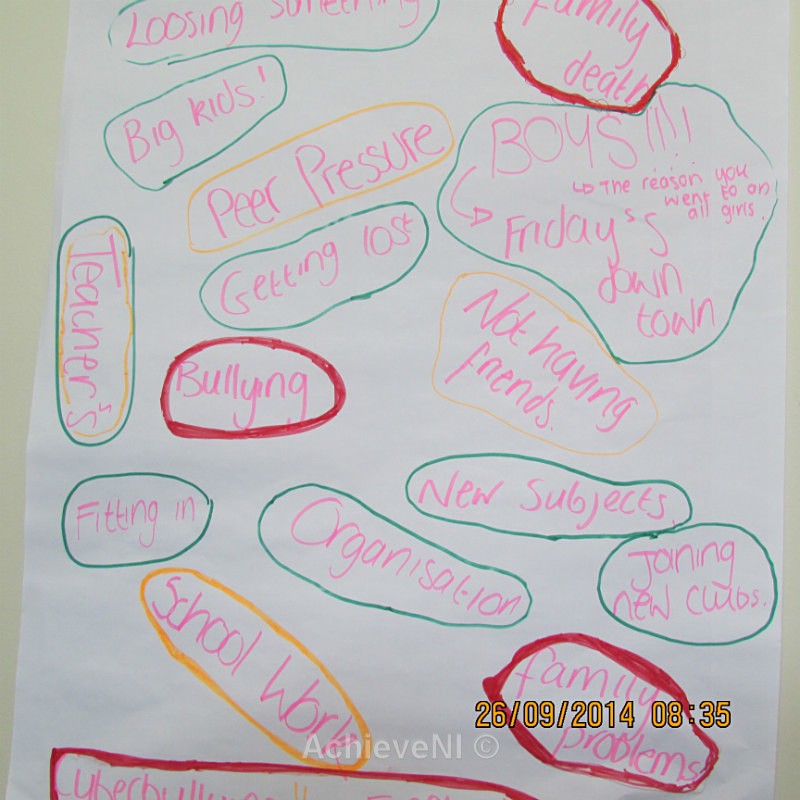 Loosing something
Family
death
Big kids!
Peer Pressure
BOYS!!!!
↳ The reason you
went to an
all girls.
Friday's
down
town
Getting lost
Teacher's
Not having
friends.
Bullying
New Subjects.
Fitting in
Organisation
Joining
new clubs.
School Work
family
problems
26/09/2014 08:35
AchieveNI ©
Cyberbullying